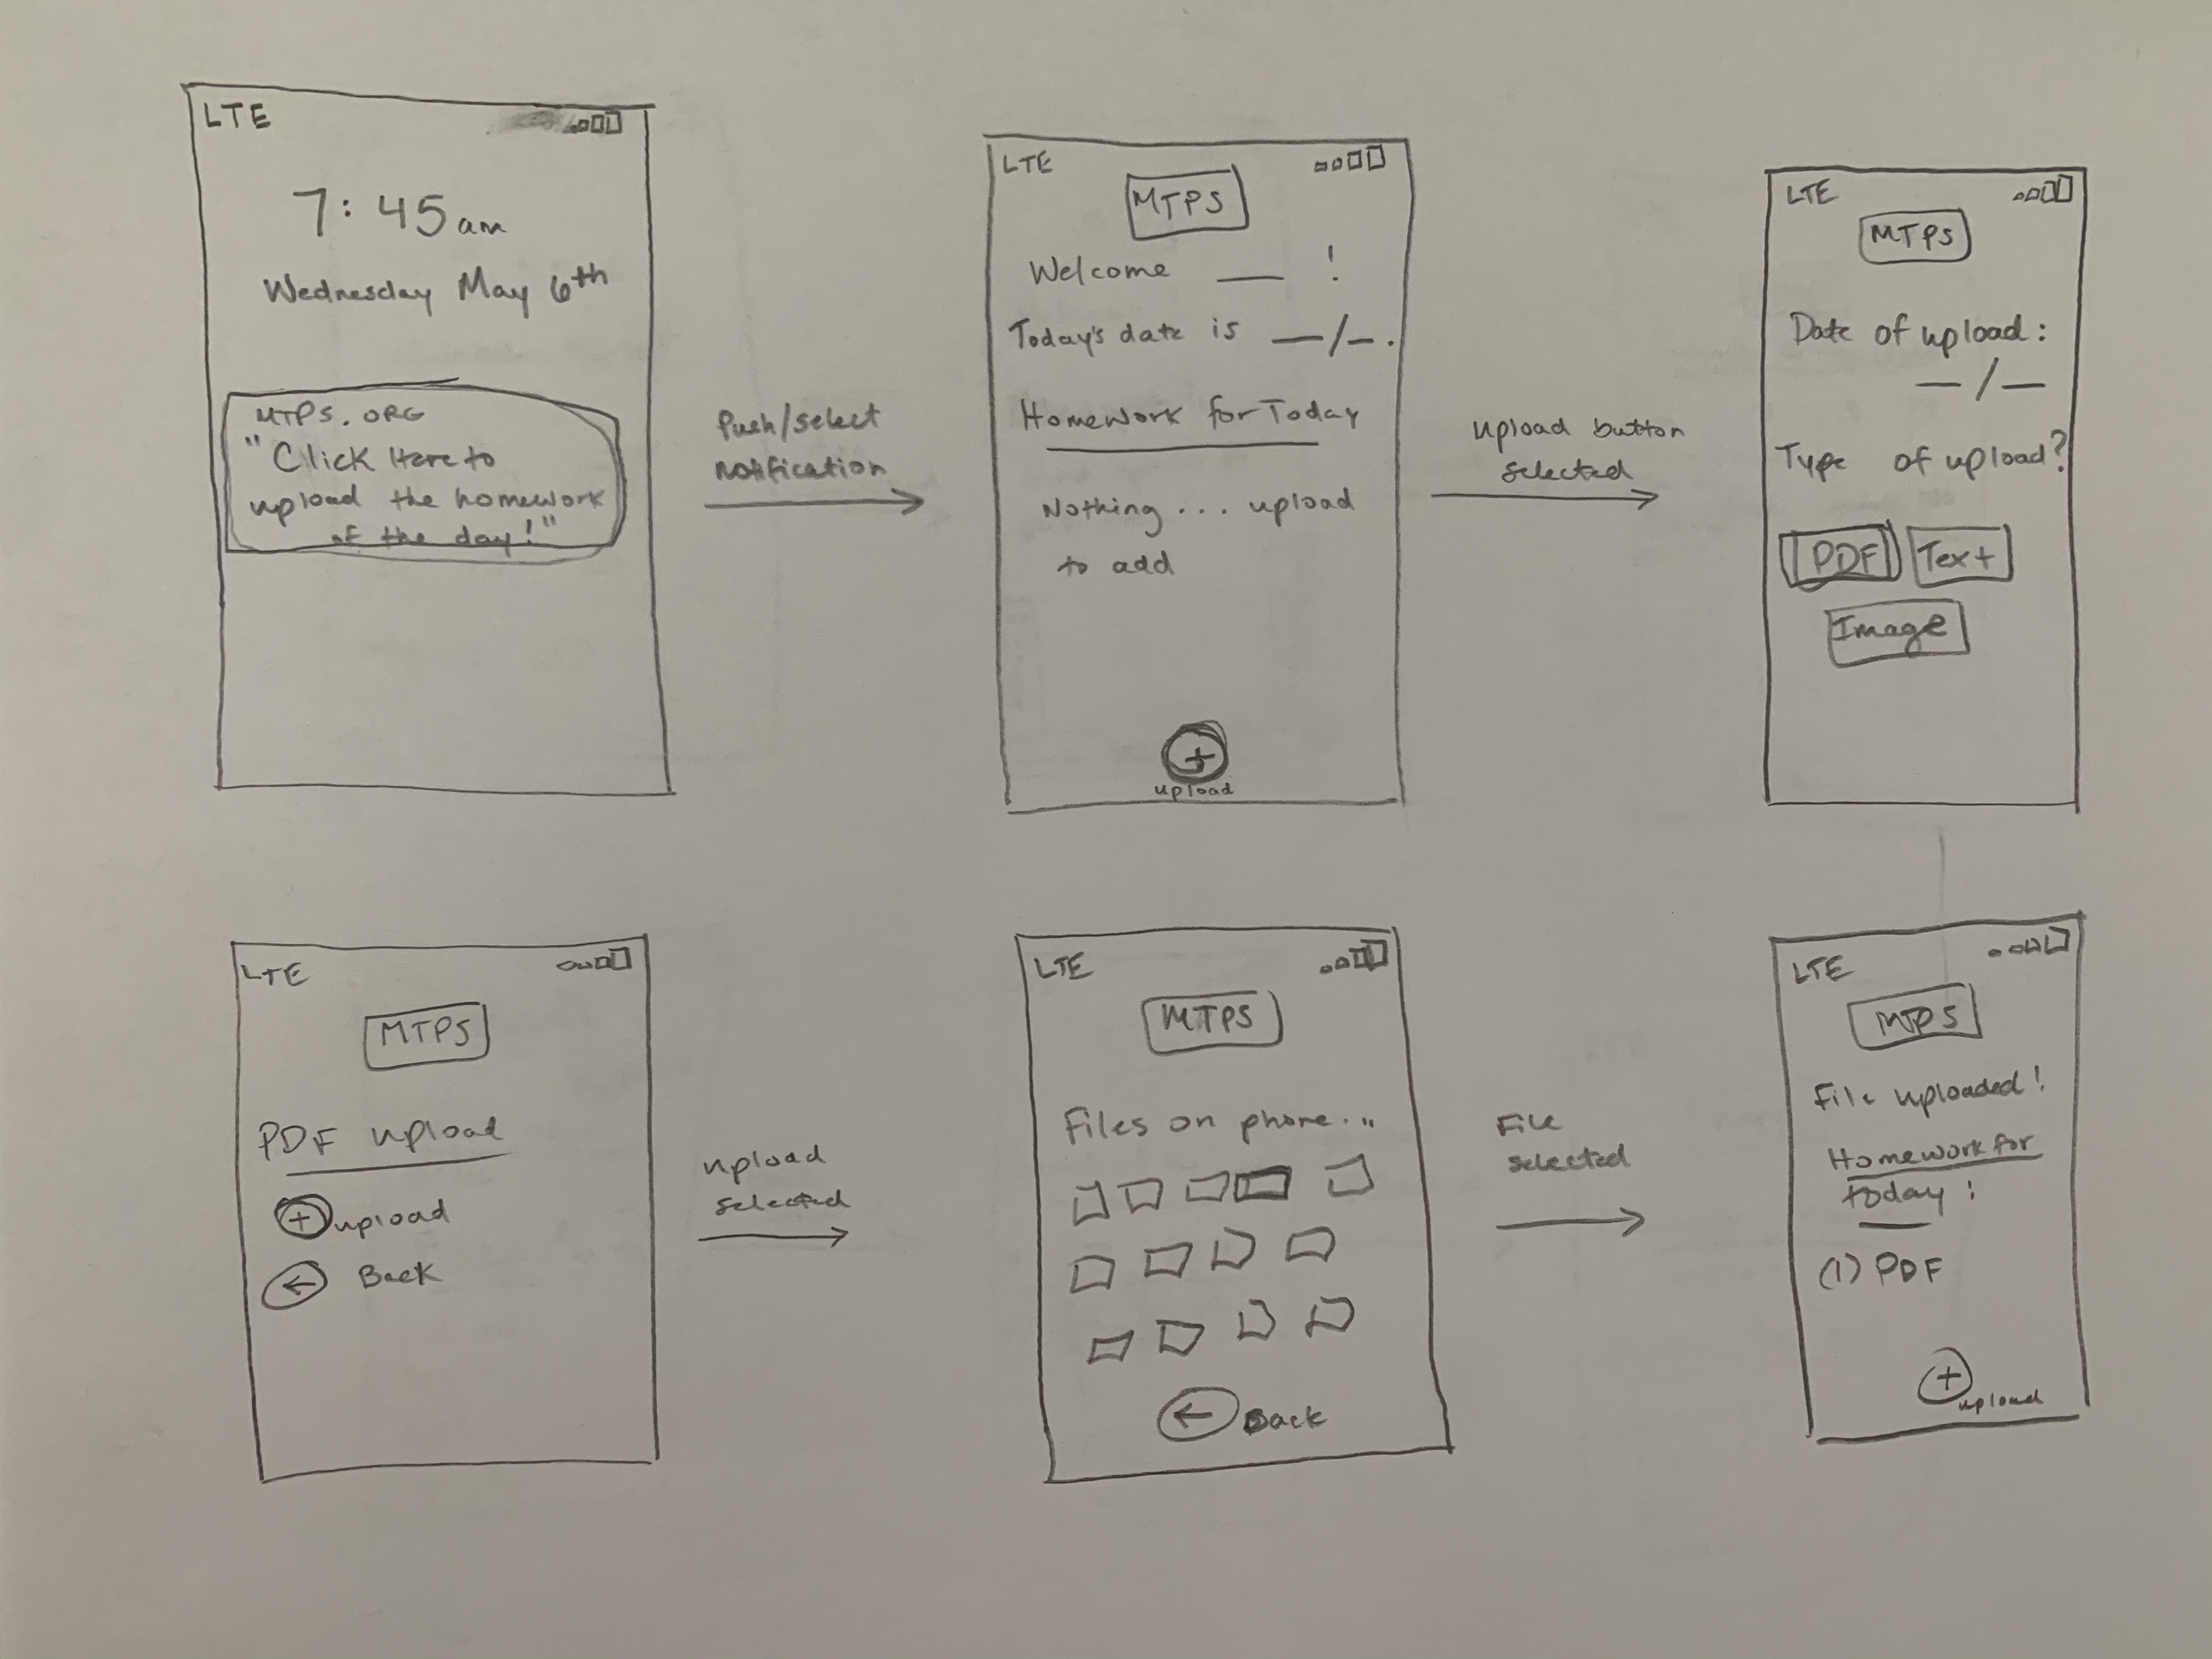 LTE
7:45am
Wednesday May 6th
MTPS.ORG
"Click Here to
upload the homework
of the day!"
Push/select
notification
LTE
MTPS
Welcome ___ !
Today's date is __/__.
Homework for Today
Nothing... upload
to add
+
upload
upload button
selected
LTE
MTPS
Date of upload:
__/__
Type of upload?
PDF Text
Image
LTE
MTPS
PDF upload
+ upload
← Back
upload
selected
LTE
MTPS
Files on phone...
← Back
File
selected
LTE
MTPS
File uploaded!
Homework for
today!
(1) PDF
+
upload